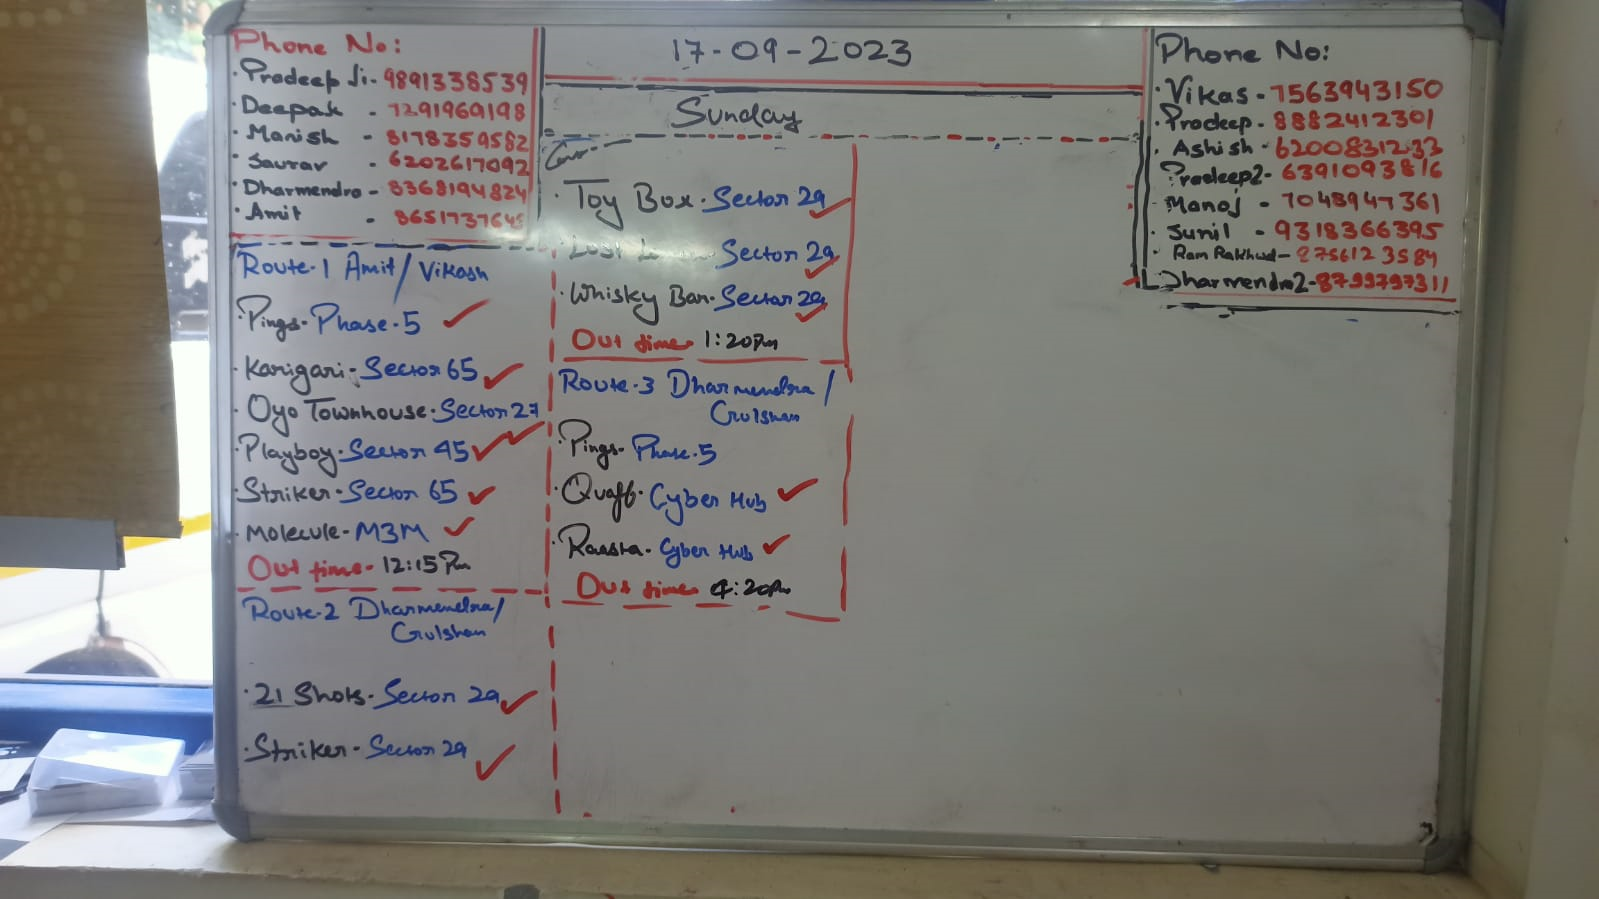 Phone No:
· Pradeep Ji - 9891338539
· Deepak - 7291969198
· Manish - 8178359582
· Saurav - 6202617092
· Dharmendra - 8368194824
· Amit - 8651737645
17-09-2023
Sunday
Phone No:
· Vikas - 7563943150
· Pradeep - 8882412301
· Ashish - 6200831233
Pradeep2 - 6391093816
· Manoj - 7048947361
· Sunil - 9318366395
· Ram Rakhwa - 8756123584
Dharmendra2 - 8799797311
Route-1 Amit / Vikash
· Pings - Phase-5
· Karigari - Sector 65
· Oyo Townhouse - Sector 27
· Playboy - Sector 45
· Striker - Sector 65
· Molecule - M3M
Out time - 12:15 Pm
Route-2 Dharmendra /
Gulshan
· 21 Shots - Sector 29
· Striker - Sector 29
· Toy Box - Sector 29
· Lost Sector 29
· Whisky Bar - Sector 29
Out time 1:20 Pm
Route-3 Dharmendra /
Gulshan
· Pings - Phase-5
· Quaff - Cyber Hub
· Raasta - Cyber Hub
Out time 4:20 Pm